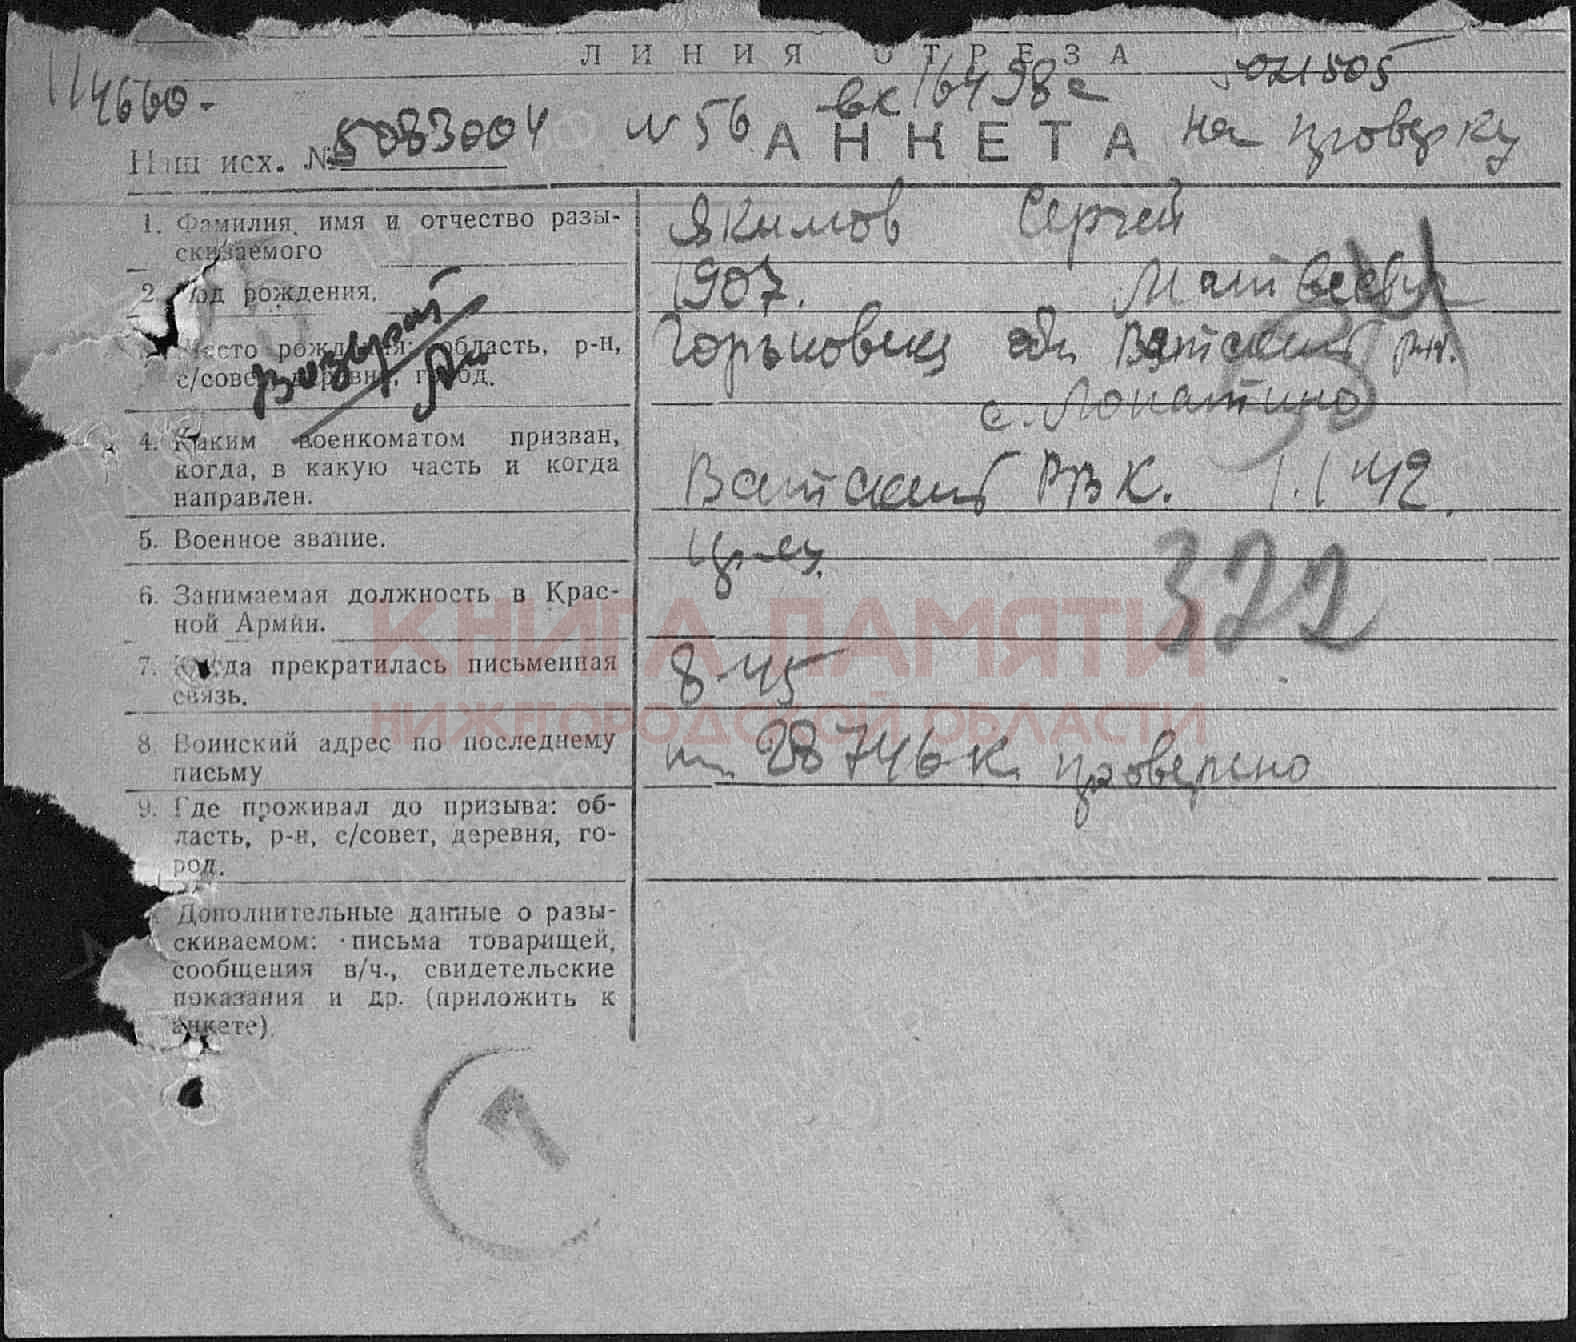 ЛИНИЯ ОТРЕЗА
114660-
вк 16498с
5021505
Наш исх. № 5083004
N 56
АНКЕТА
на проверку
1. Фамилия, имя и отчество разыскиваемого
Якимов Сергей
Матвеевич
2. Год рождения.
1907.
Место рождения: область, р-н,
с/совет, деревня, город.
Возврат
Горьковск обл Ватский р-н.
с. Лопатино
4. Каким военкоматом призван,
когда, в какую часть и когда
направлен.
Ватский РВК. 1.1 42.
5. Военное звание.
6. Занимаемая должность в Крас-
ной Армии.
322
КНИГА ПАМЯТИ
НИЖЕГОРОДСКОЙ ОБЛАСТИ
7. Когда прекратилась письменная
связь.
8-45
8. Воинский адрес по последнему
письму
пп 28746 К проверено
9. Где проживал до призыва: об-
ласть, р-н, с/совет, деревня, го-
род.
Дополнительные данные о разы-
скиваемом: письма товарищей,
сообщения в/ч., свидетельские
показания и др. (приложить к
анкете)
7